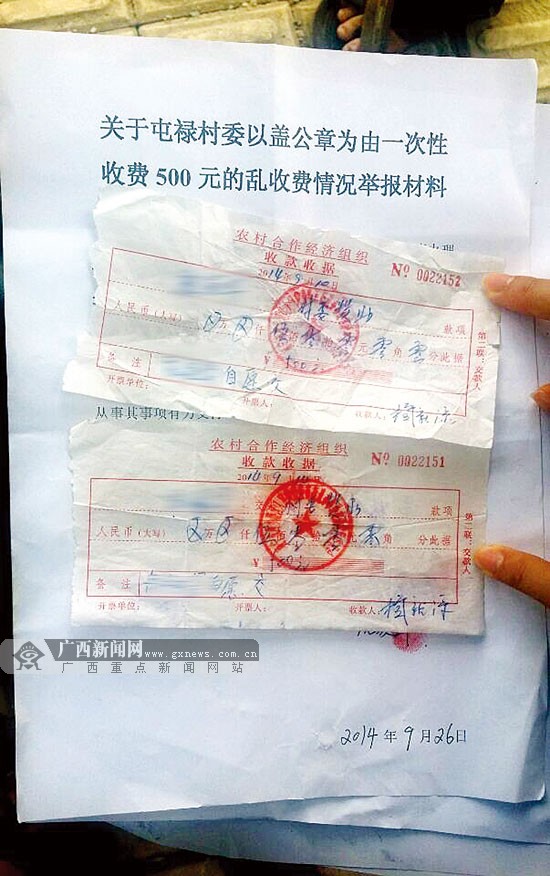 关于屯禄村委以盖公章为由一次性
收费 500 元的乱收费情况举报材料
农村合作经济组织
收款收据
2014年9月10日
№ 0022152
村委
款项
人民币（大写） 万 仟 伍 佰 零 零 元 零 角 零 分此据
¥ 500元
备注
自愿交
开票单位：
开票人：
收款人：
第二联：交款人
从事其事项有
农村合作经济组织
收款收据
2014 9
№ 0022151
交
村委
款项
人民币（大写） 万 仟 伍 零 零 元 零 角 分此据
500元
备注
自愿交
开票单位：
开票人：
收款人：
第二联：交款人
广西新闻网
www.gxnews.com.cn
广西重点新闻网站
2014 年 9 月 26 日